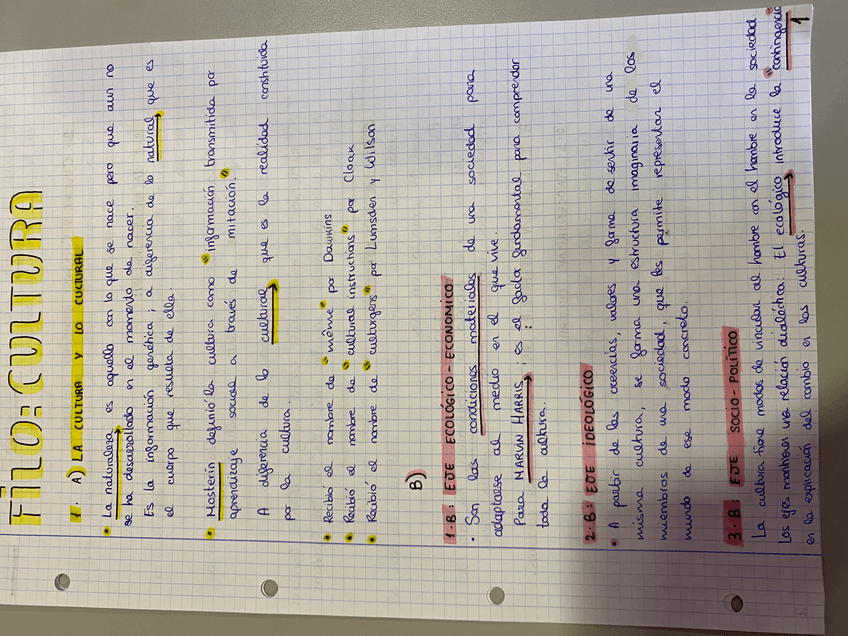 FILO: CULTURA
1. A) LA CULTURA Y LO CULTURAL
• La naturaleza es aquello con lo que se nace pero que aun no
se ha desarrollado en el momento de nacer.
Es la información genética; a diferencia de lo natural que es
el cuerpo que resulta de ella.
• Mosterín definió la cultura como "información transmitida por
aprendizaje social a través de mitación."
A diferencia de lo cultural que es la realidad constituida
por la cultura.
• Recibió el nombre de "même" por Dawkins
• Recibió el nombre de "cultural instructions" por Cloak
• Recibió el nombre de "culturgens" por Lumsden y Wilson
B)
1.B: EJE ECOLÓGICO-ECONOMICO
• Son las condiciones materiales de una sociedad para
adaptarse al medio en el que vive.
Para MARVIN HARRIS, es el factor fundamental para comprender
toda la cultura.
2.B: EJE IDEOLÓGICO
• A partir de las creencias, valores y forma de sentir de una
misma cultura, se forma una estructura imaginaria de los
miembros de una sociedad, que les permite representar el
mundo de ese modo concreto.
3.B: EJE SOCIO-POLÍTICO
La cultura tiene modos de vincular al hombre con el hombre en la sociedad.
Los ejes mantienen una relación dialéctica: El ecológico introduce la "contingencia"
en la explicación del cambio en las culturas.
1